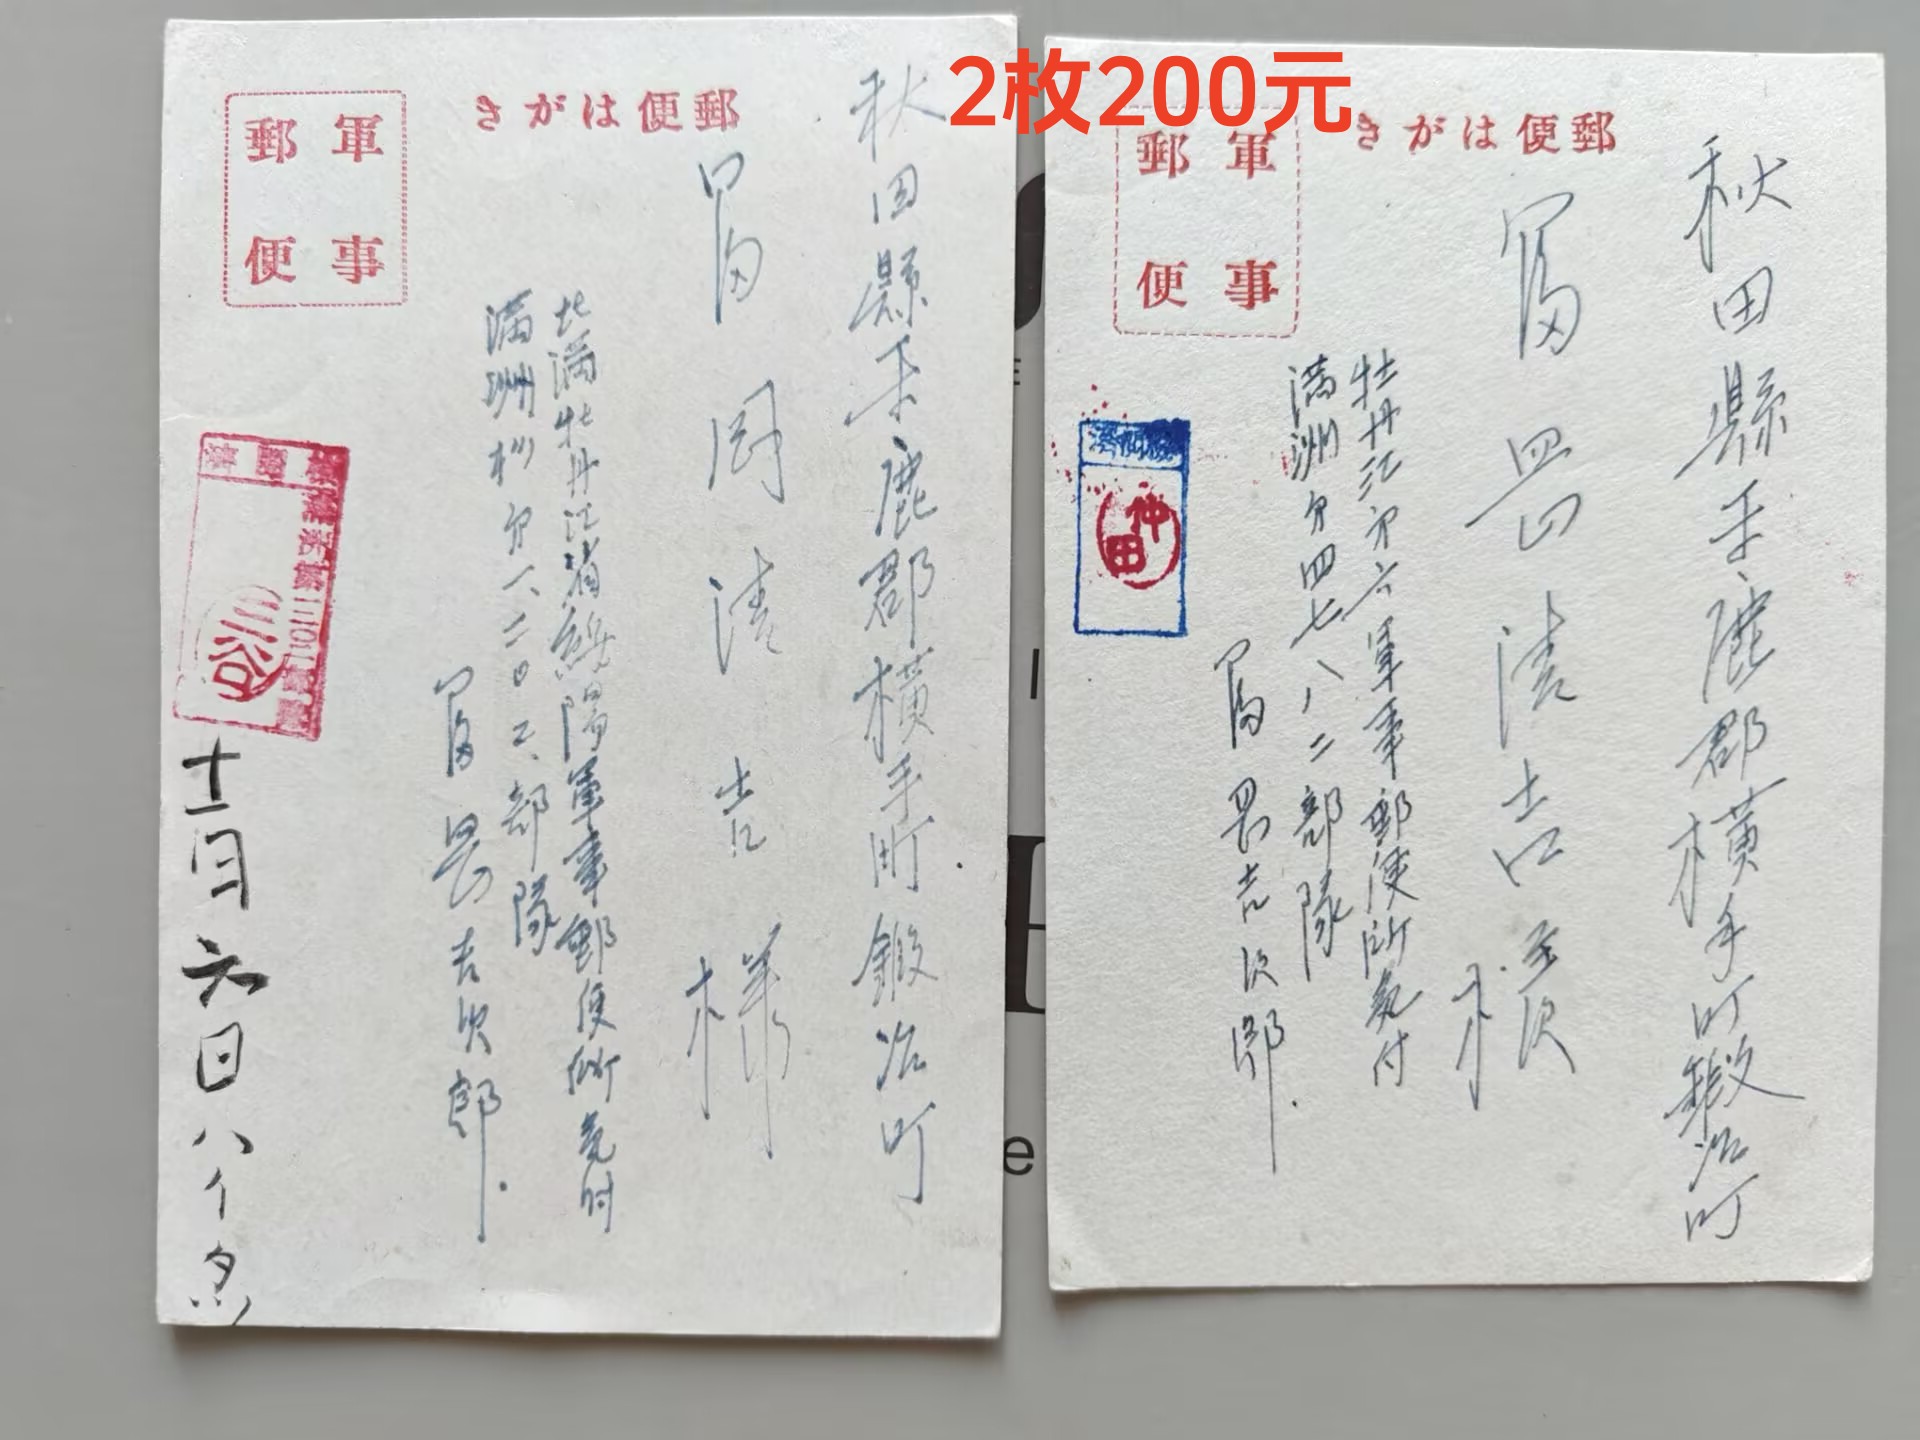 2枚200元
郵便はがき
軍事郵便
秋田縣平鹿郡横手町鍛冶町
冨岡清吉様
北満牡丹江省綏陽軍事郵便所気付
満洲第一二〇六部隊
冨岡吉次郎
三谷
十一月六日
郵便はがき
軍事郵便
秋田縣平鹿郡横手町鍛冶町
冨岡清吉様
牡丹江第六軍事郵便所気付
満洲第四七八八二部隊
冨岡吉次郎
検閲済
仲田